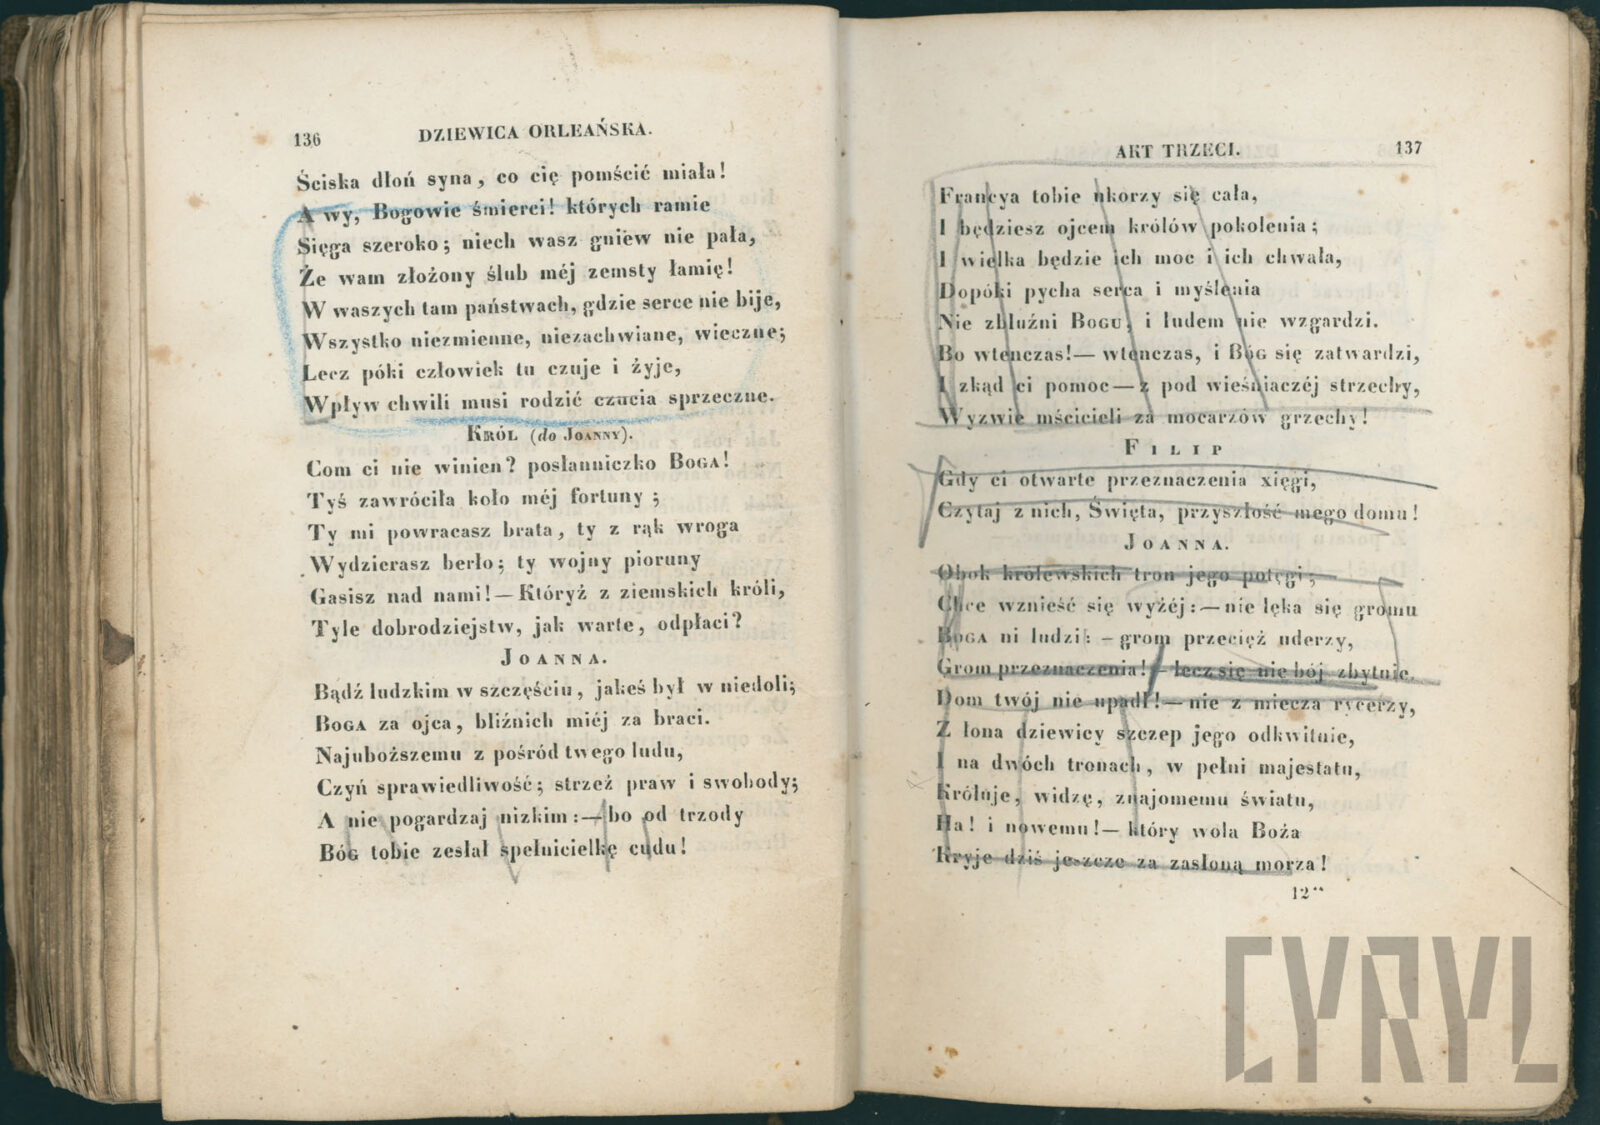 136
DZIEWICA ORLEAŃSKA.
Ściska dłoń syna, co cię pomścić miała!
A wy, Bogowie śmierci! których ramie
Sięga szeroko; niech wasz gniew nie pała,
Że wam złożony ślub méj zemsty łamię!
W waszych tam państwach, gdzie serce nie bije,
Wszystko niezmienne, niezachwiane, wieczne;
Lecz póki człowiek tu czuje i żyje,
Wpływ chwili musi rodzić czucia sprzeczne.
KRÓL (do JOANNY).
Com ci nie winien? posłanniczko BOGA!
Tyś zawróciła koło méj fortuny;
Ty mi powracasz brata, ty z rąk wroga
Wydzierasz berło; ty wojny pioruny
Gasisz nad nami!—Któryż z ziemskich króli,
Tyle dobrodziejstw, jak warte, odpłaci?
JOANNA.
Bądź ludzkim w szczęściu, jakeś był w niedoli;
BOGA za ojca, bliźnich miéj za braci.
Najuboższemu z pośród twego ludu,
Czyń sprawiedliwość; strzeż praw i swobody;
A nie pogardzaj nizkim:—bo od trzody
BÓG tobie zesłał spełnicielkę cudu!
AKT TRZECI.
137
Francya tobie ukorzy się cała,
I będziesz ojcem królów pokolenia;
I wielka będzie ich moc i ich chwała,
Dopóki pycha serca i myślenia
Nie zbluźni BOGU, i ludem nie wzgardzi.
Bo wtenczas!— wtenczas, i BÓG się zatwardzi,
I zkąd ci pomoc—z pod wieśniaczéj strzechy,
Wyzwie mścicieli za mocarzów grzechy!
FILIP
Gdy ci otwarte przeznaczenia xięgi,
Czytaj z nich, Święta, przyszłość mego domu!
JOANNA.
Obok królewskich tron jego potęgi;
Chce wznieść się wyźéj:—nie lęka się gromu
BOGA ni ludzi: – grom przecięż uderzy,
Grom przeznaczenia!—lecz się nie bój zbytnie.
Dom twój nie upadł!—nie z miecza rycerzy,
Z łona dziewicy szczep jego odkwitnie,
I na dwóch tronach, w pełni majestatu,
Króluje, widzę, znajomemu światu,
Ha! i nowemu!—który wola Boża
Kryje dziś jeszcze za zasłoną morza!
12**
CYRYL